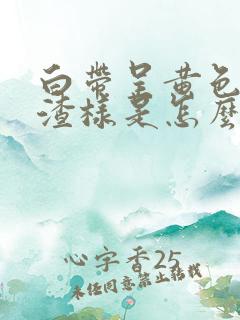 白带呈黄色
渣样是怎么
心宇香25
未经同意禁止转载